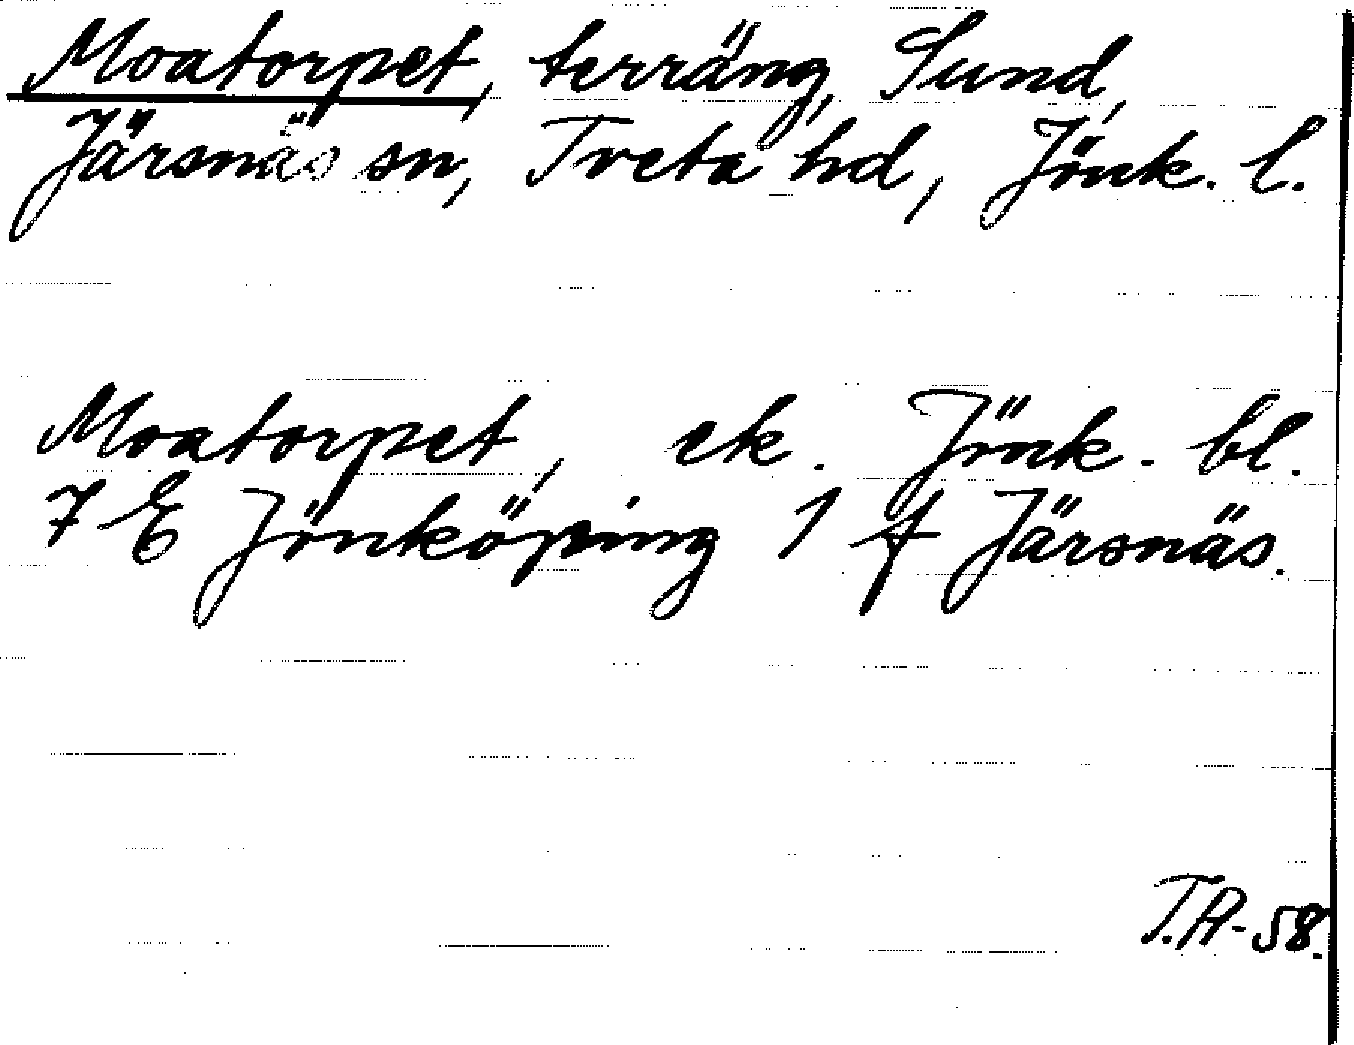 Moatorpet, terräng, Sund,
Järsnäs sn, Tveta hd, Jönk. l.
Moatorpet, ek. Jönk. bl.
7 E Jönköping 1 f Järsnäs.
T.A-58.